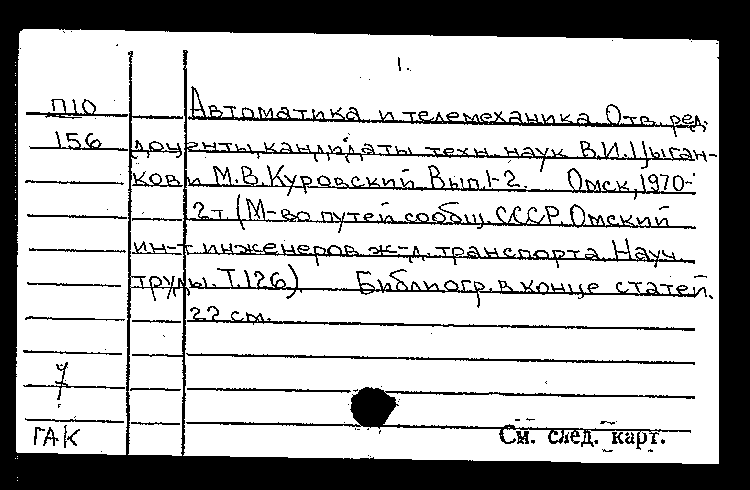 1.
П10 Автоматика и телемеханика Отв. ред.
156 доценты, кандидаты техн. наук В.И. Цыган-
ков и М.В. Куровский. Вып. 1-2. Омск, 1970-
2т. (М-во путей сообщ. СССР. Омский
ин-т инженеров ж-д. транспорта. Науч.
труды. Т. 126). Библиогр. в конце статей.
22 см.
7
ГАК См. след. карт.